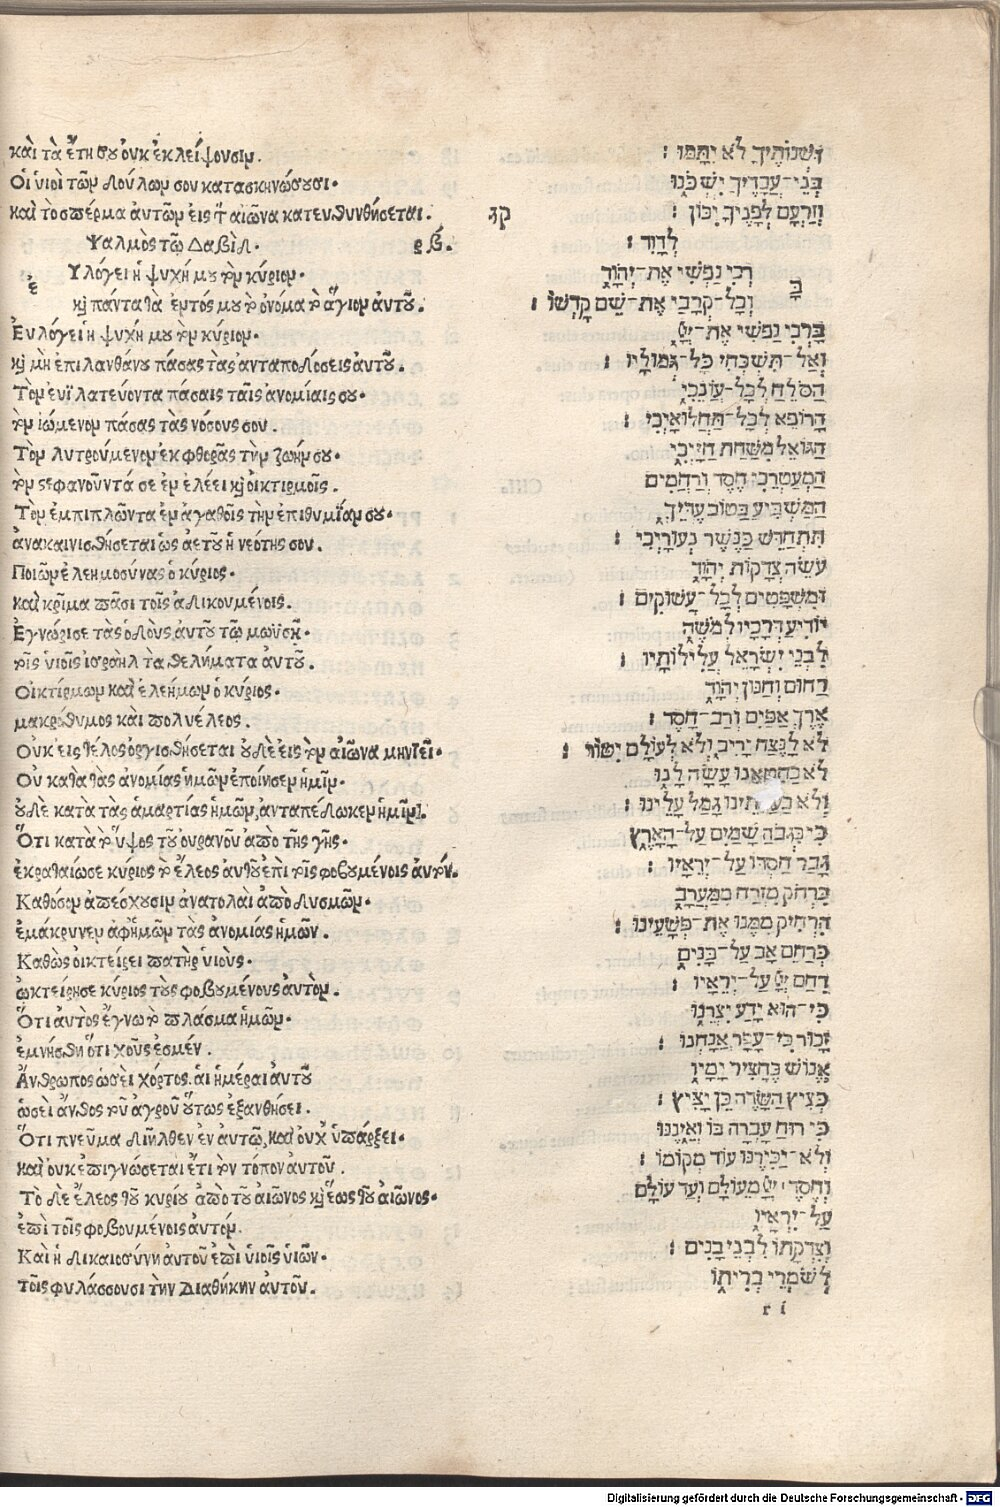 καὶ τὰ ἔτη σου ὀυκ ἐκλείψουσιν.
Οἱ ὑιοὶ τῶν δούλων σου κατασκηνώσουσι·
καὶ τὸ σπέρμα ἀυτῶν ἐις τὸν αἰῶνα κατευθυνθήσεται.
Ψαλμὸς τῷ Δαβίδ. ρβ.
ἐ Υλόγει ἡ ψυχή μου τὸν κύριον·
καὶ πάντα τὰ ἐντός μου τὸ ὄνομα τὸ ἅγιον ἀυτοῦ.
Ἐυλόγει ἡ ψυχή μου τὸν κύριον·
καὶ μὴ ἐπιλανθάνου πάσας τὰς ἀνταποδόσεις ἀυτοῦ.
Τὸν ἐυϊλατέυοντα πάσαις ταῖς ἀνομίαις σου·
τὸν ἰώμενον πάσας τὰς νόσους σου.
Τὸν λυτρούμενον ἐκ φθορᾶς τὴν ζωήν σου·
τὸν στεφανοῦντά σε ἐν ἐλέει καὶ ὀικτιρμοῖς.
Τὸν ἐμπιπλῶντα ἐν ἀγαθοῖς τὴν ἐπιθυμίαν σου·
ἀνακαινισθήσεται ὡς ἀετοῦ ἡ νεότης σου.
Ποιῶν ἐλεημοσύνας ὁ κύριος·
καὶ κρῖμα πᾶσι τοῖς ἀδικουμένοις.
Ἐγνώρισε τὰς ὁδοὺς ἀυτοῦ τῷ μωϋσῇ·
τοῖς ὑιοῖς ἰσραὴλ τὰ θελήματα ἀυτοῦ.
Οἰκτίρμων καὶ ἐλεήμων ὁ κύριος·
μακρόθυμος καὶ πολυέλεος.
Οὐκ εἰς τέλος ὀργισθήσεται οὐδὲ ἐις τὸν αἰῶνα μηνιεῖ·
Οὐ κατὰ τὰς ἀνομίας ἡμῶν ἐποίησεν ἡμῖν·
οὐδὲ κατὰ τὰς ἁμαρτίας ἡμῶν, ἀνταπέδωκεν ἡμῖν.
Ὅτι κατὰ τὸ ὕψος τοῦ ουρανοῦ ἀπὸ τῆς γῆς·
ἐκραταίωσε κύριος τὸ ἔλεος ἀυτοῦ ἐπὶ τοὺς φοβουμένοις ἀυτόν.
Καθόσον ἀπέσχουσιν ἀνατολαὶ ἀπὸ δυσμῶν·
ἐμάκρυνεν ἀφ' ἡμῶν τὰς ἀνομίας ἡμῶν.
Καθὼς ὀικτείρει πατὴρ ὑιοὺς·
ὠκτείρησε κύριος τοὺς φοβουμένους ἀυτὸν.
Ὅτι ἀυτὸς ἔγνω τὸ πλάσμα ἡμῶν·
ἐμνήσθη ὅτι χοῦς ἐσμέν.
Ἄνθρωπος ὡσεὶ χόρτος ἁι ἡμέραι ἀυτοῦ
ὡσεὶ ἄνθος τοῦ ἀγροῦ οὕτως ἐξανθήσει.
Ὅτι πνεῦμα διῆλθεν ἐν ἀυτῷ, καὶ ὀυχ ὑπάρξει·
καὶ ὀυκ ἐπιγνώσεται ἔτι τὸν τόπον ἀυτοῦ.
Τὸ δὲ ἔλεος τοῦ κυρίου ἀπὸ τοῦ αἰῶνος καὶ ἕως τοῦ αἰῶνος·
ἐπὶ τοῖς φοβουμένοις ἀυτόν.
Καὶ ἡ δικαιοσύνη ἀυτοῦ ἐπὶ ὑιοῖς ὑιῶν·
τοῖς φυλάσσουσι τὴν Διαθήκην ἀυτοῦ.
וּשְׁנוֹתֶיךָ לֹא יִתָּמּוּ :
בְּנֵי־עֲבָדֶיךָ יִשְׁכֹּנוּ
וְזַרְעָם לְפָנֶיךָ יִכּוֹן :
קג
לְדָוִד :
בָּ רְכִי נַפְשִׁי אֶת־יְהוָֹה
וְכָל־קְרָבַי אֶת־שֵׁם קָדְשׁוֹ :
בָּרְכִי נַפְשִׁי אֶת־
וְאַל־תִּשְׁכְּחִי כָּל־גְּמוּלָיו :
הַסֹּלֵחַ לְכָל־עֲוֹנֵכִי
הָרוֹפֵא לְכָל־תַּחֲלוּאָיְכִי :
הַגּוֹאֵל מִשַּׁחַת חַיָּיְכִי
הַמְעַטְּרֵכִי חֶסֶד וְרַחֲמִים
הַמַּשְׂבִּיעַ בַּטּוֹב עֶדְיֵךְ
תִּתְחַדֵּשׁ כַּנֶּשֶׁר נְעוּרָיְכִי :
עֹשֵׂה צְדָקוֹת יְהוָֹה
וּמִשְׁפָּטִים לְכָל־עֲשׁוּקִים :
יוֹדִיעַ דְּרָכָיו לְמֹשֶׁה
לִבְנֵי יִשְׂרָאֵל עֲלִילוֹתָיו :
רַחוּם וְחַנּוּן יְהוָֹה
אֶרֶךְ אַפַּיִם וְרַב־חָסֶד :
לֹא לָנֶצַח יָרִיב וְלֹא לְעוֹלָם יִטּוֹר :
לֹא כַחֲטָאֵנוּ עָשָׂה לָנוּ
וְלֹא גָּמַל עָלֵינוּ :
כִּי כִגְבֹהַּ שָׁמַיִם עַל־הָאָרֶץ
גָּבַר חַסְדּוֹ עַל־יְרֵאָיו :
כִּרְחֹק מִזְרָח מִמַּעֲרָב
הִרְחִיק מִמֶּנּוּ אֶת־פְּשָׁעֵינוּ :
כְּרַחֵם אָב עַל־בָּנִים
רִחַם עַל־יְרֵאָיו :
כִּי־הוּא יָדַע יִצְרֵנוּ
זָכוּר כִּי־עָפָר אֲנָחְנוּ :
אֱנוֹשׁ כֶּחָצִיר יָמָיו
כְּצִיץ הַשָּׂדֶה כֵּן יָצִיץ :
כִּי רוּחַ עָבְרָה בּוֹ וְאֵינֶנּוּ
וְלֹא־יַכִּירֶנּוּ עוֹד מְקוֹמוֹ :
וְחֶסֶד מֵעוֹלָם וְעַד עוֹלָם
עַל־יְרֵאָיו
וְצִדְקָתוֹ לִבְנֵי בָנִים :
לְשֹׁמְרֵי בְרִיתוֹ
r i
Digitalisierung gefördert durch die Deutsche Forschungsgemeinschaft - DFG